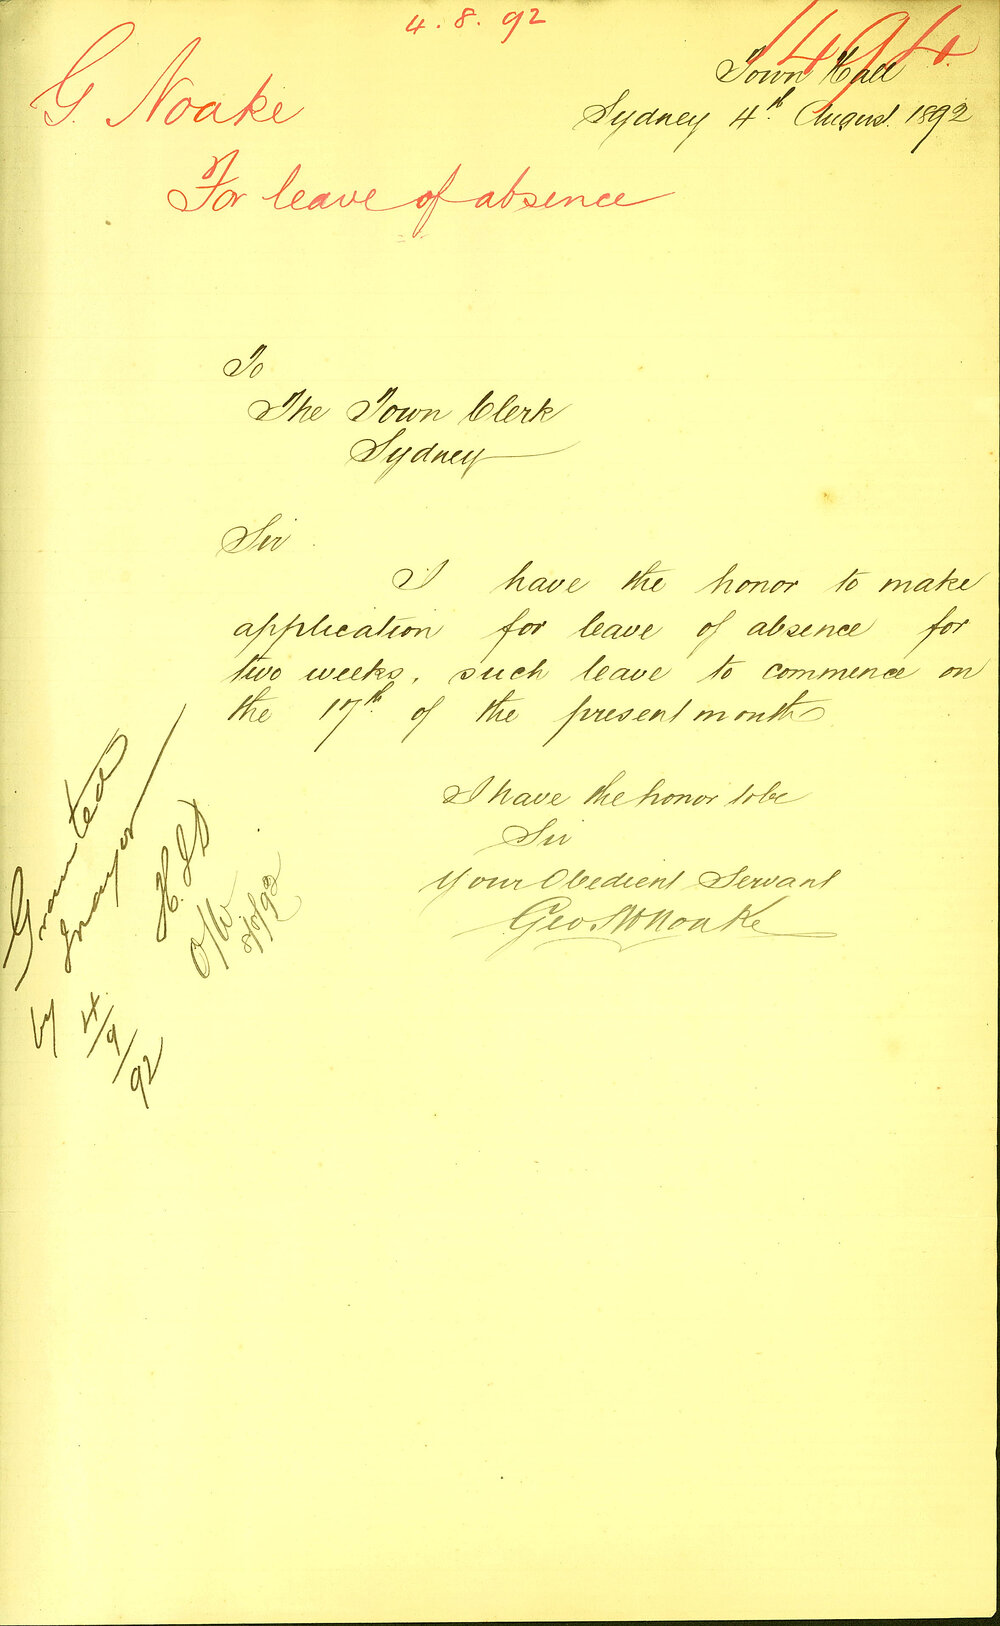 4.8.92
1494.
Town Hall
Sydney 4th August. 1892
G. Noake
For leave of absence
To
The Town Clerk
Sydney
Sir
I have the honor to make
application for leave of absence for
two weeks, such leave to commence on
the 17th of the present month
I have the honor to be
Sir
Your Obedient Servant
Geo Noake
Granted
by Mayor
4/9/92
H.